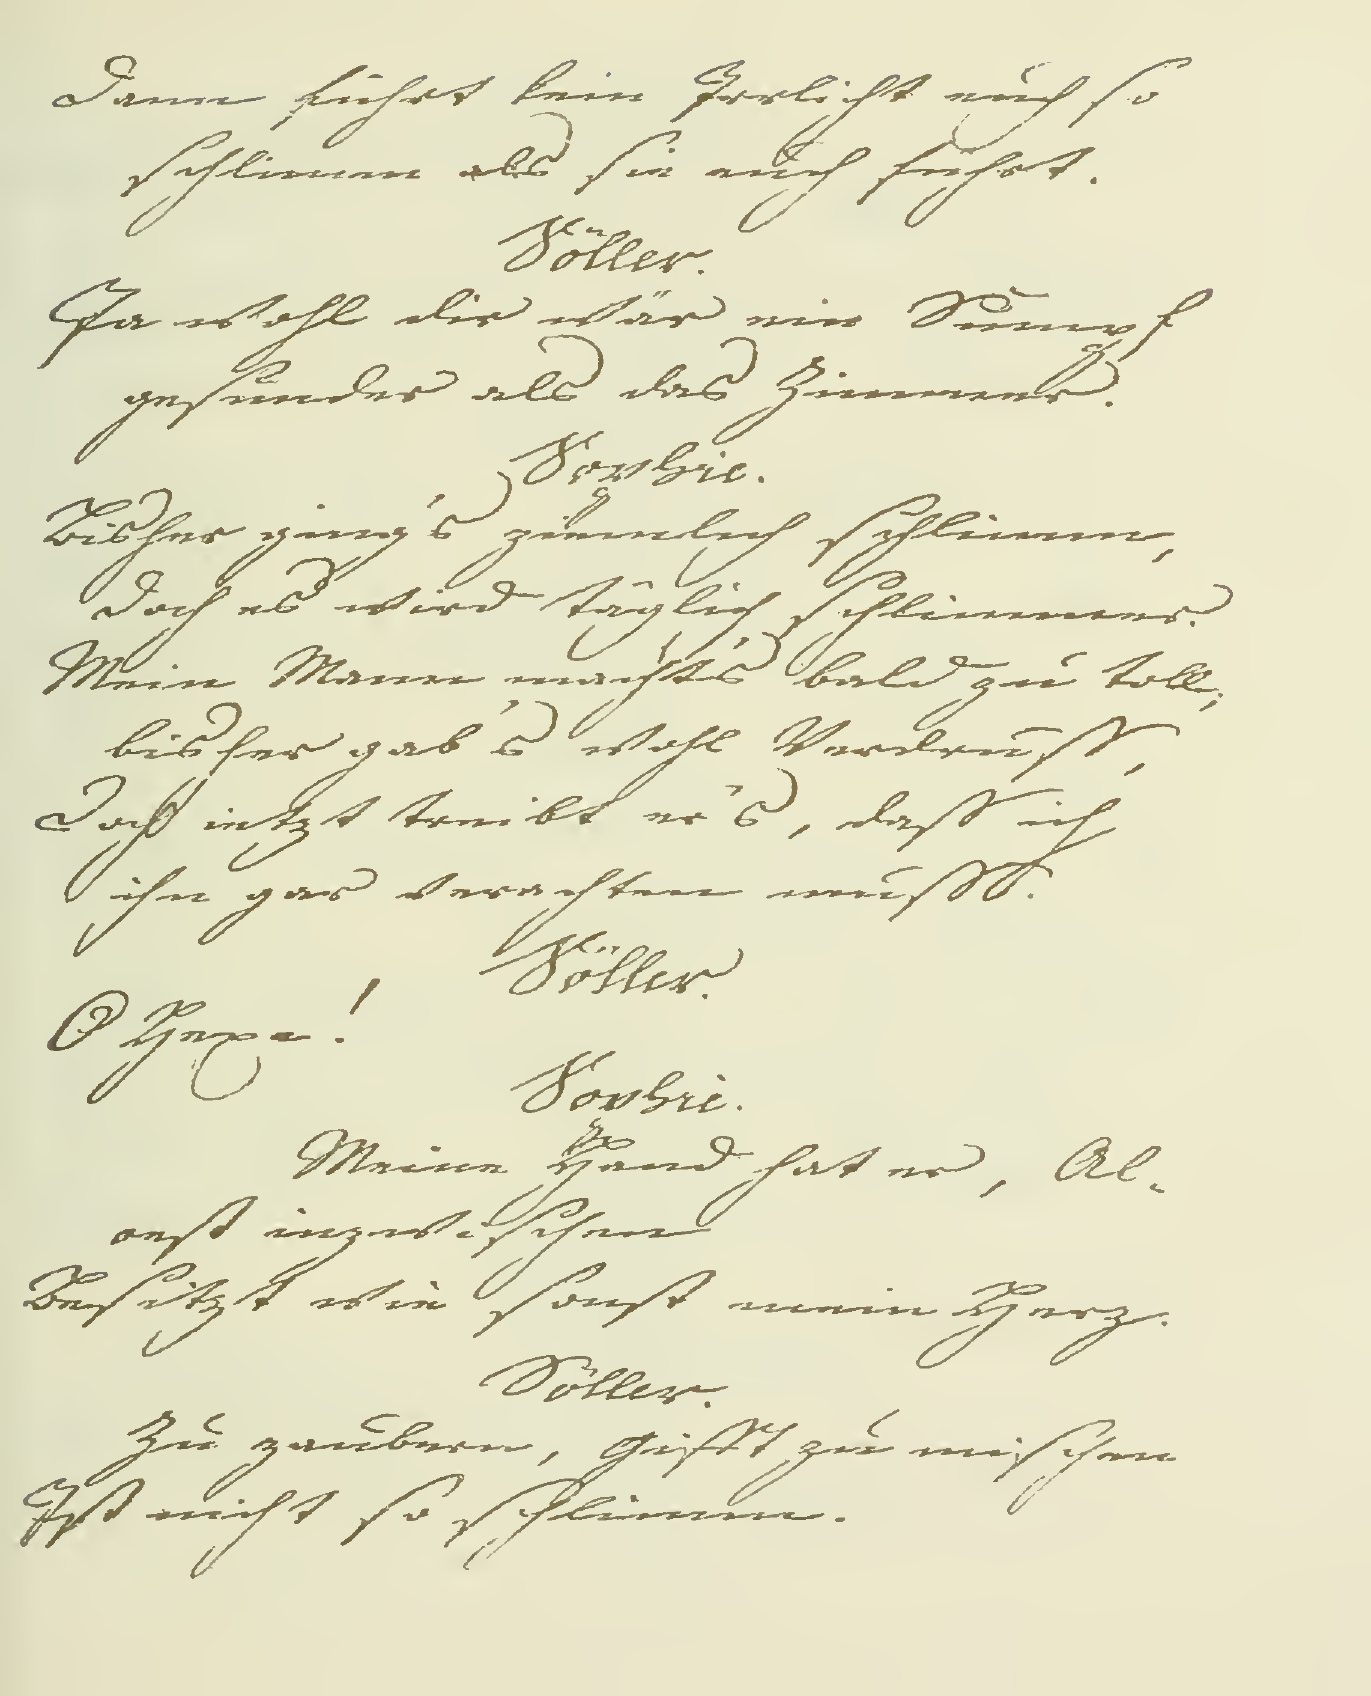 Dann führt kein Irrlicht euch so
schlimm als sie euch führt.
Söller.
Ja wohl dir wär ein Sumpf
gesünder als das Zimmer.
Sophie.
Bisher ging's ziemlich schlimm,
doch es wird täglich schlimmer.
Mein Mann macht's bald zu toll;
bisher gab's wohl Verdruss,
Doch ietzt treibt er's, dass ich
ihn gar verachten muss.
Söller.
O Hexe!
Sophie.
Meine Hand hat er, Al-
cest inzwischen
Besitzt wie sonst mein Herz.
Söller.
Zu zaubern, Gifft zu mischen
Ist nicht so schlimm.